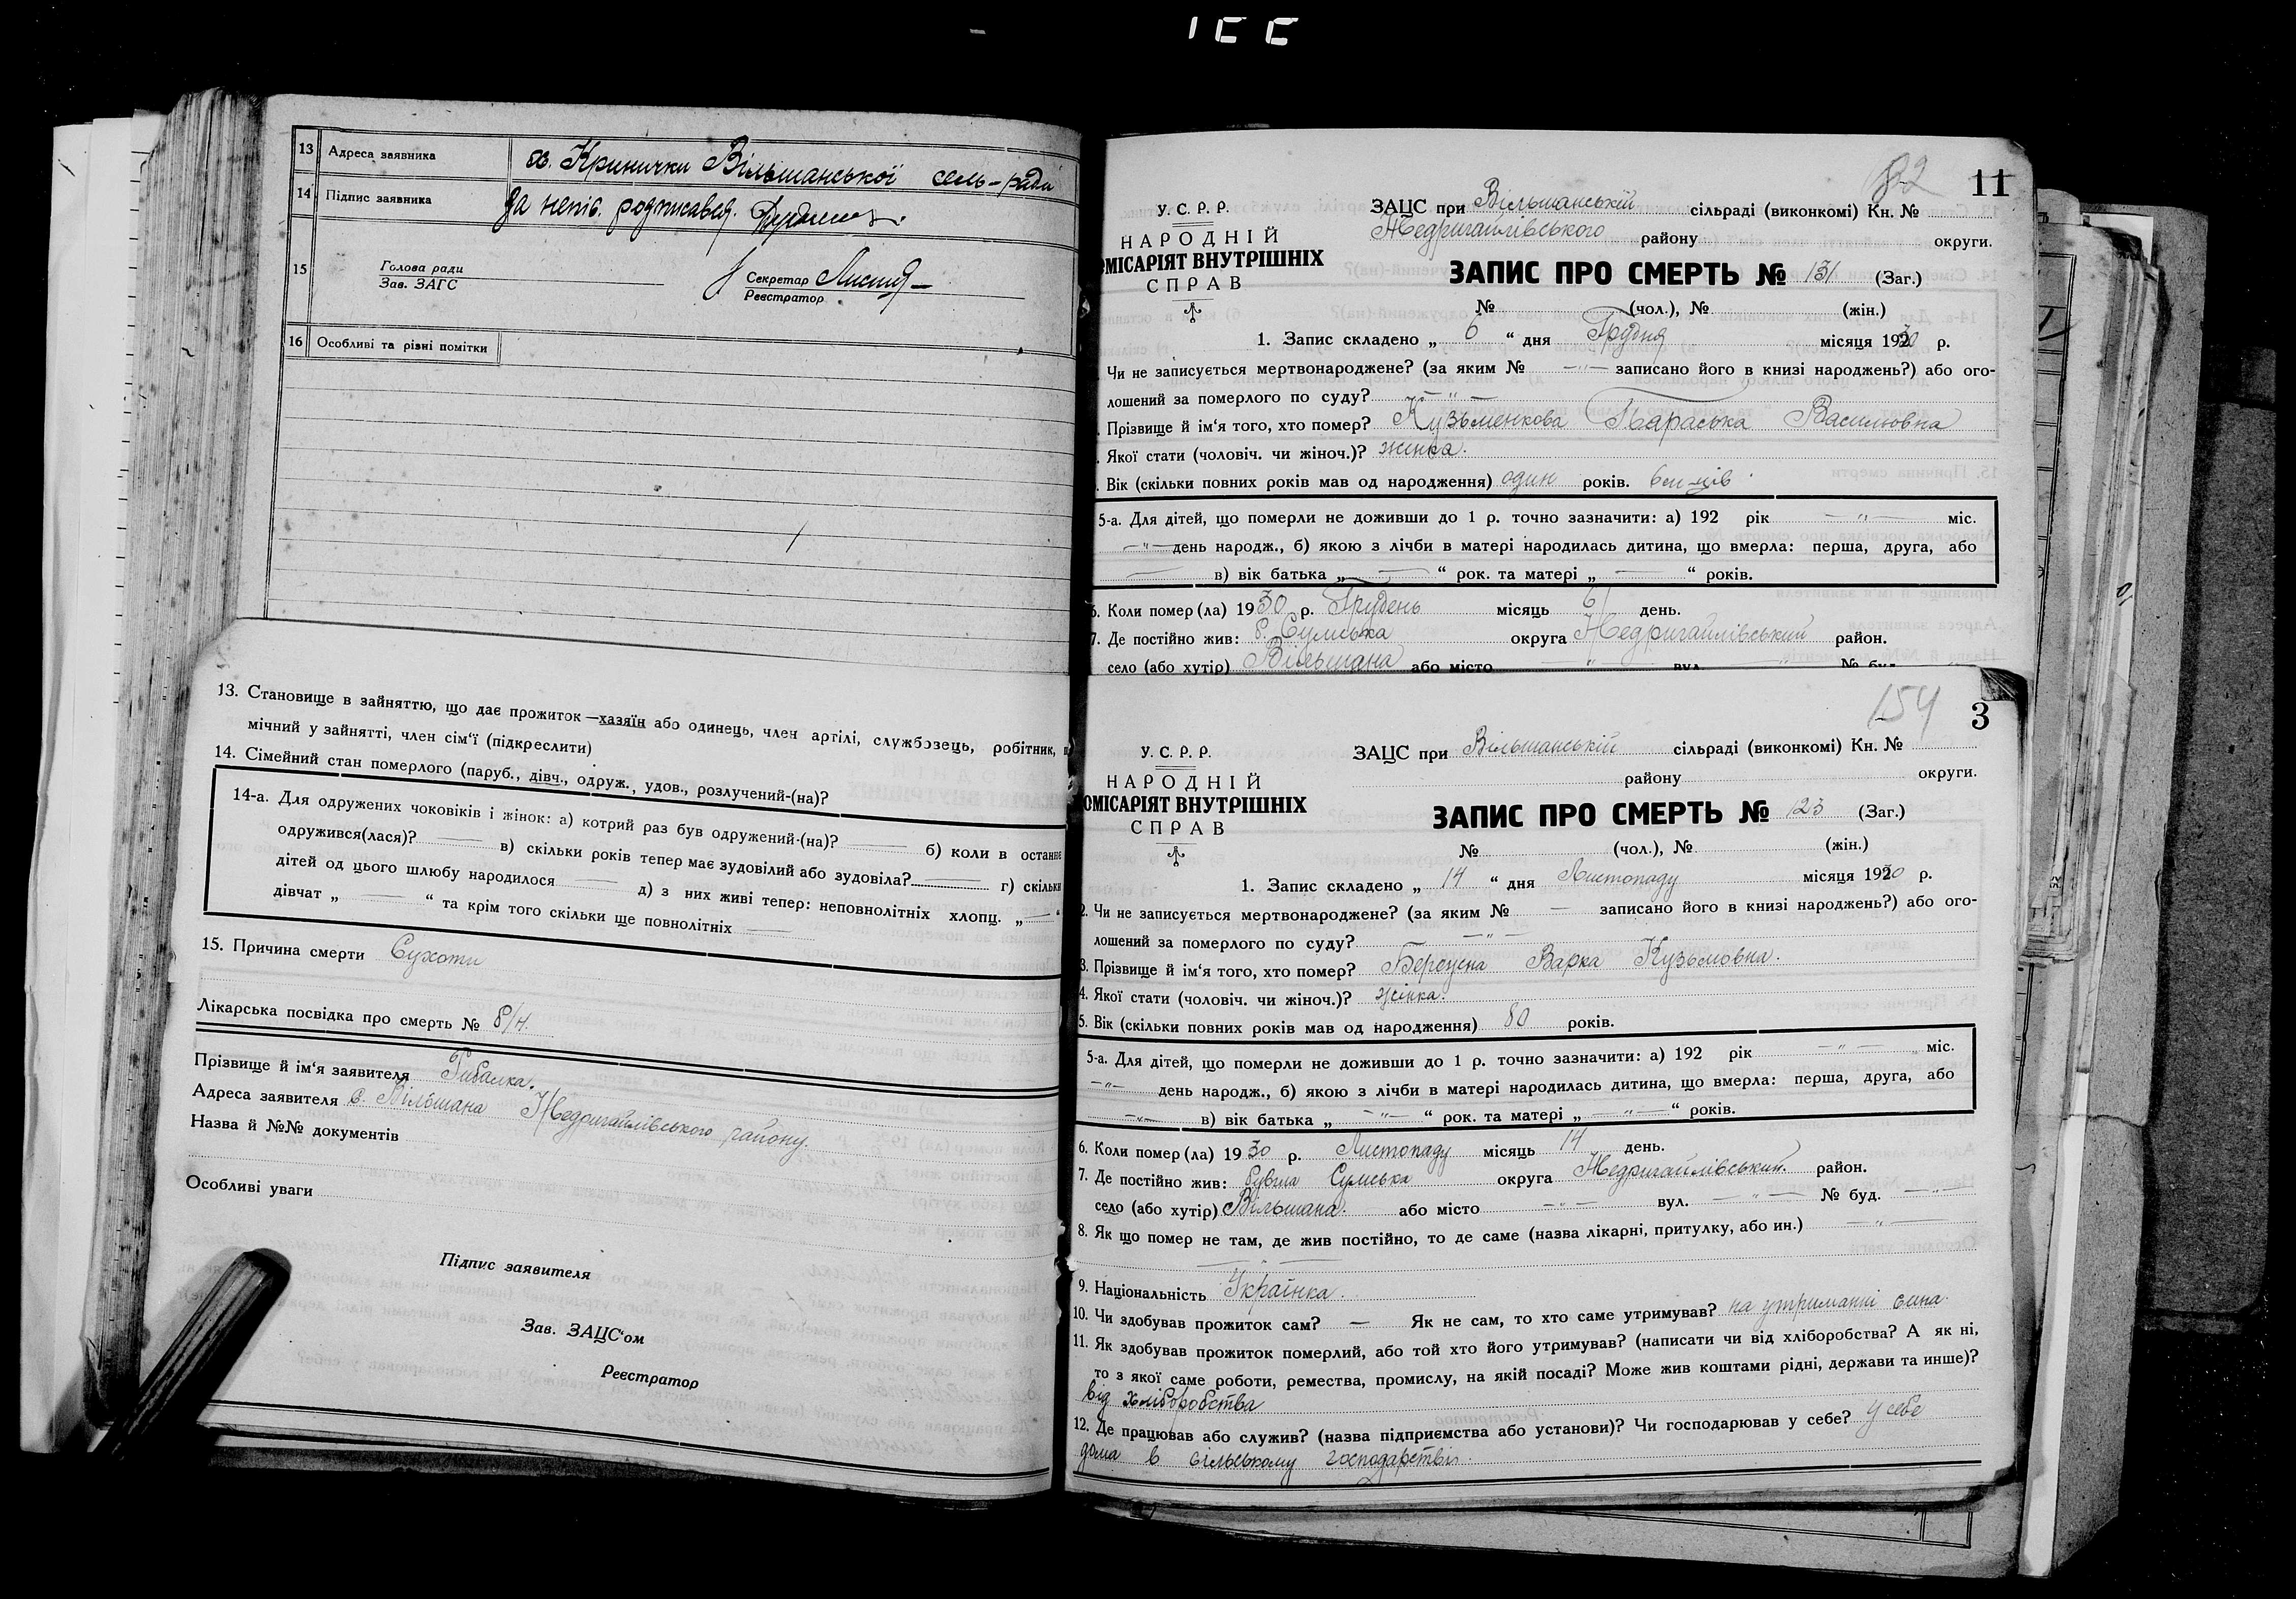 13 Адреса заявника х. Кринички Вільшанської сель-ради
14 Підпис заявника За непис. розписався.
15 Голова ради
Зав. ЗАГС
Секретар
Реєстратор
16 Особливі та різні помітки
13. Становище в зайняттю, що дає прожиток—хазяїн або одинець, член артілі, службовець, робітник,
мічний у зайнятті, член сім'ї (підкреслити)
14. Сімейний стан померлого (паруб., дівч., одруж., удов., розлучений-(на)?
14-а. Для одружених чоковіків і жінок: а) котрий раз був одружений-(на)? — б) коли в останнє
одружився(лася)? — в) скільки років тепер має зудовілий або зудовіла? — г) скільки
дітей од цього шлюбу народилося — д) з них живі тепер: неповнолітніх хлопц. „—“
дівчат „ — “ та крім того скільки ще повнолітніх —
15. Причина смерти Сухоти
Лікарська посвідка про смерть № б/н.
Прізвище й ім'я заявителя Рибалка.
Адреса заявителя с. Вільшана Недригайлівського району.
Назва й №№ документів
Особливі уваги
Підпис заявителя
Зав. ЗАЦС'ом
Реєстратор
11
У. С. Р. Р.
НАРОДНІЙ
ОМІСАРІЯТ ВНУТРІШНІХ
СПРАВ
ЗАЦС при Вільшанській сільраді (виконкомі) Кн. №
Недригайлівського району округи.
ЗАПИС ПРО СМЕРТЬ № 131 (Заг.)
№ (чол.), № (жін.)
1. Запис складено „ 6 “ дня Грудня місяця 1930 р.
Чи не записується мертвонароджене? (за яким № —"— записано його в книзі народжень?) або ого-
лошений за померлого по суду? —"—
Прізвище й ім'я того, хто помер? Кузьменкова Параська Василювна
Якої стати (чоловіч. чи жіноч.)? жінка.
Вік (скільки повних років мав од народження) один років. 6 м-ців
5-а. Для дітей, що померли не доживши до 1 р. точно зазначити: а) 192 рік —"— міс.
—"— день народж., б) якою з лічби в матері народилась дитина, що вмерла: перша, друга, або
— в) вік батька „ — “ рок. та матері „ — “ років.
6. Коли помер(ла) 1930 р. Грудень місяць 6 день.
7. Де постійно жив: б. Сумська округа Недригайлівський район.
село (або хутір) Вільшана або місто —"— вул. —"— № буд.
154
3
У. С. Р. Р.
НАРОДНІЙ
ОМІСАРІЯТ ВНУТРІШНІХ
СПРАВ
ЗАЦС при Вільшанській сільраді (виконкомі) Кн. №
району округи.
ЗАПИС ПРО СМЕРТЬ № 123 (Заг.)
№ (чол.), № (жін.)
1. Запис складено „ 14 “ дня Листопаду місяця 1930 р.
2. Чи не записується мертвонароджене? (за яким № — записано його в книзі народжень?) або ого-
лошений за померлого по суду? —"—
3. Прізвище й ім'я того, хто помер? Варка Кузьмовна.
4. Якої стати (чоловіч. чи жіноч.)? жінка.
5. Вік (скільки повних років мав од народження) 80 років.
5-а. Для дітей, що померли не доживши до 1 р. точно зазначити: а) 192 рік —"— міс.
—"— день народж., б) якою з лічби в матері народилась дитина, що вмерла: перша, друга, або
—"— в) вік батька „ —"— “ рок. та матері „ —"— “ років.
6. Коли помер(ла) 1930 р. Листопаду місяць 14 день.
7. Де постійно жив: бувша Сумська округа Недригайлівський район.
село (або хутір) Вільшана. або місто —"— вул. —"— № буд. —"—
8. Як що помер не там, де жив постійно, то де саме (назва лікарні, притулку, або ин.) —"—
—"—
9. Національність Українка.
10. Чи здобував прожиток сам? — Як не сам, то хто саме утримував? на утриманні сина.
11. Як здобував прожиток померлий, або той хто його утримував? (написати чи від хліборобства? А як ні,
то з якої саме роботи, ремества, промислу, на якій посаді? Може жив коштами рідні, держави та инше)?
від хліборобства
12. Де працював або служив? (назва підприємства або установи)? Чи господарював у себе? у себе
дома в сільському господарстві.